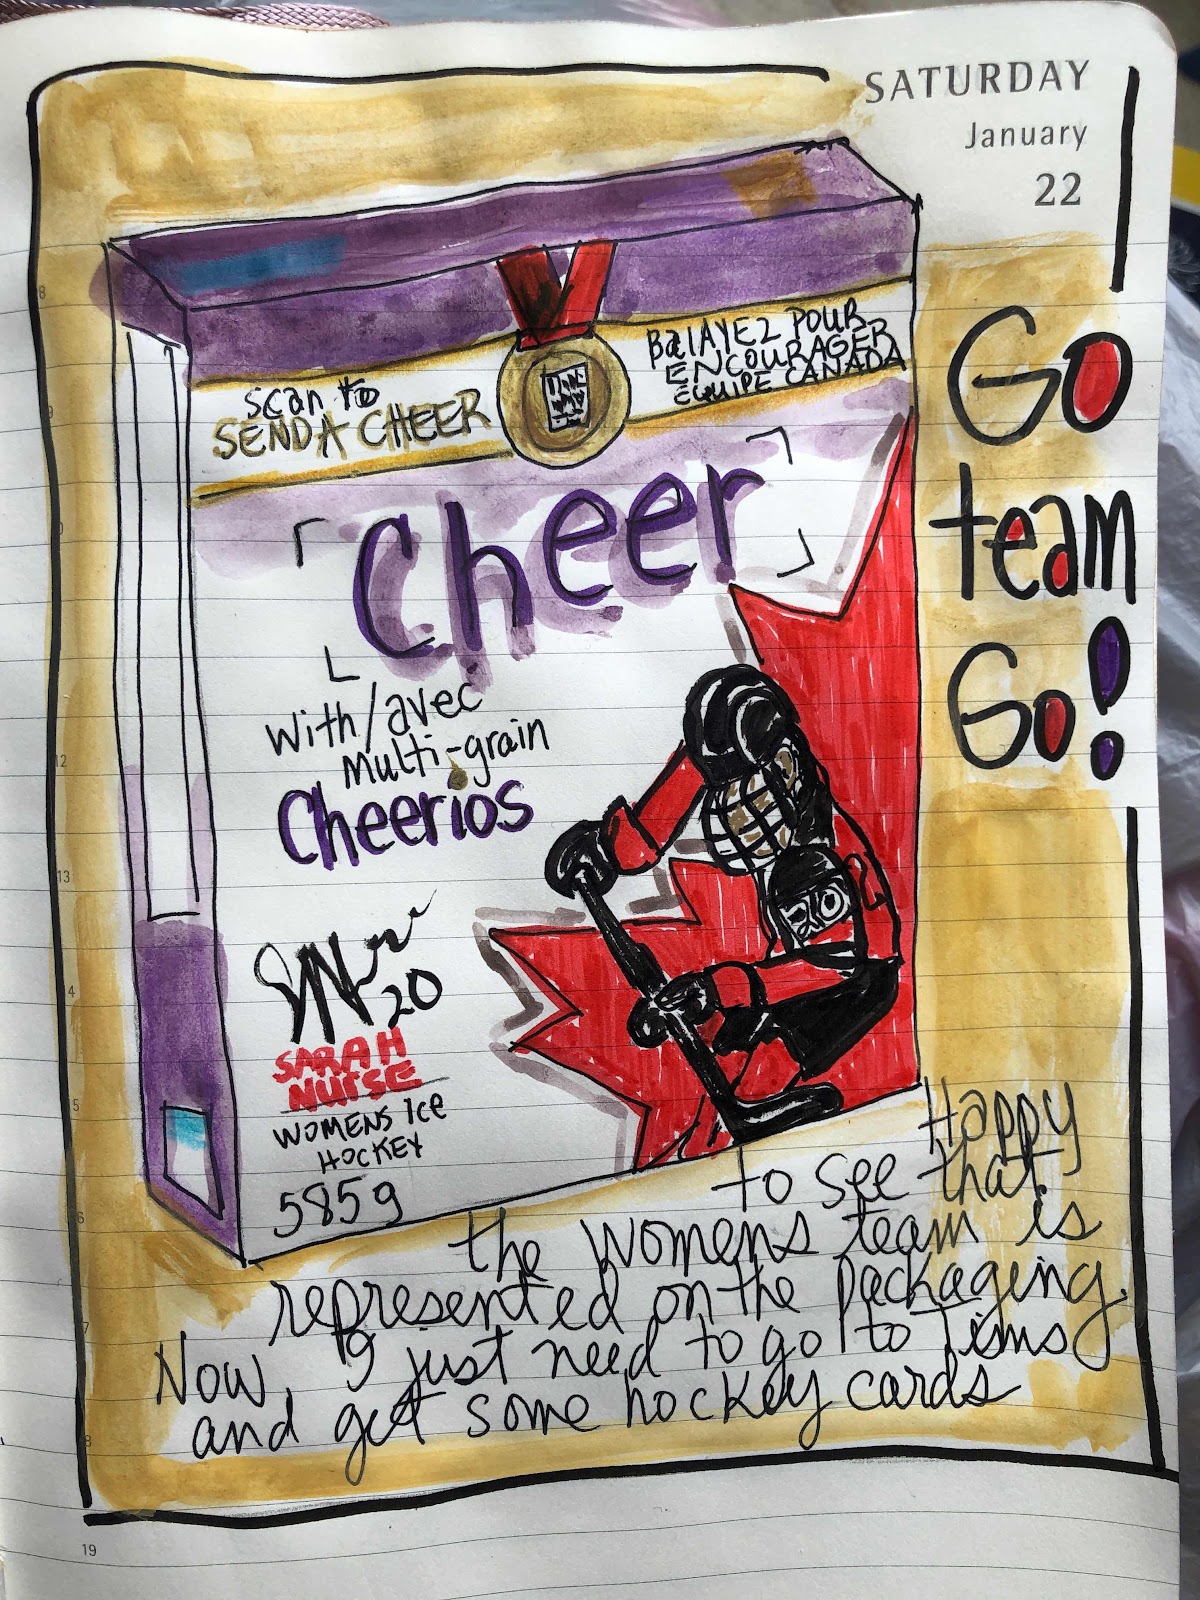 SATURDAY
January
22
Go
team
Go!
scan to
SEND A CHEER
BalAYEZ POUR
ENCOURAGER
ÉQUIPE CANADA
Cheer
With/avec
Multi-grain
Cheerios
20
SARAH
NURSE
WOMENS ICE
HOCKEY
585g
Happy
to see that
the womens team is
represented on the packaging.
Now, I just need to go to Tims
and get some hockey cards
8
9
12
13
4
5
6
7
8
19